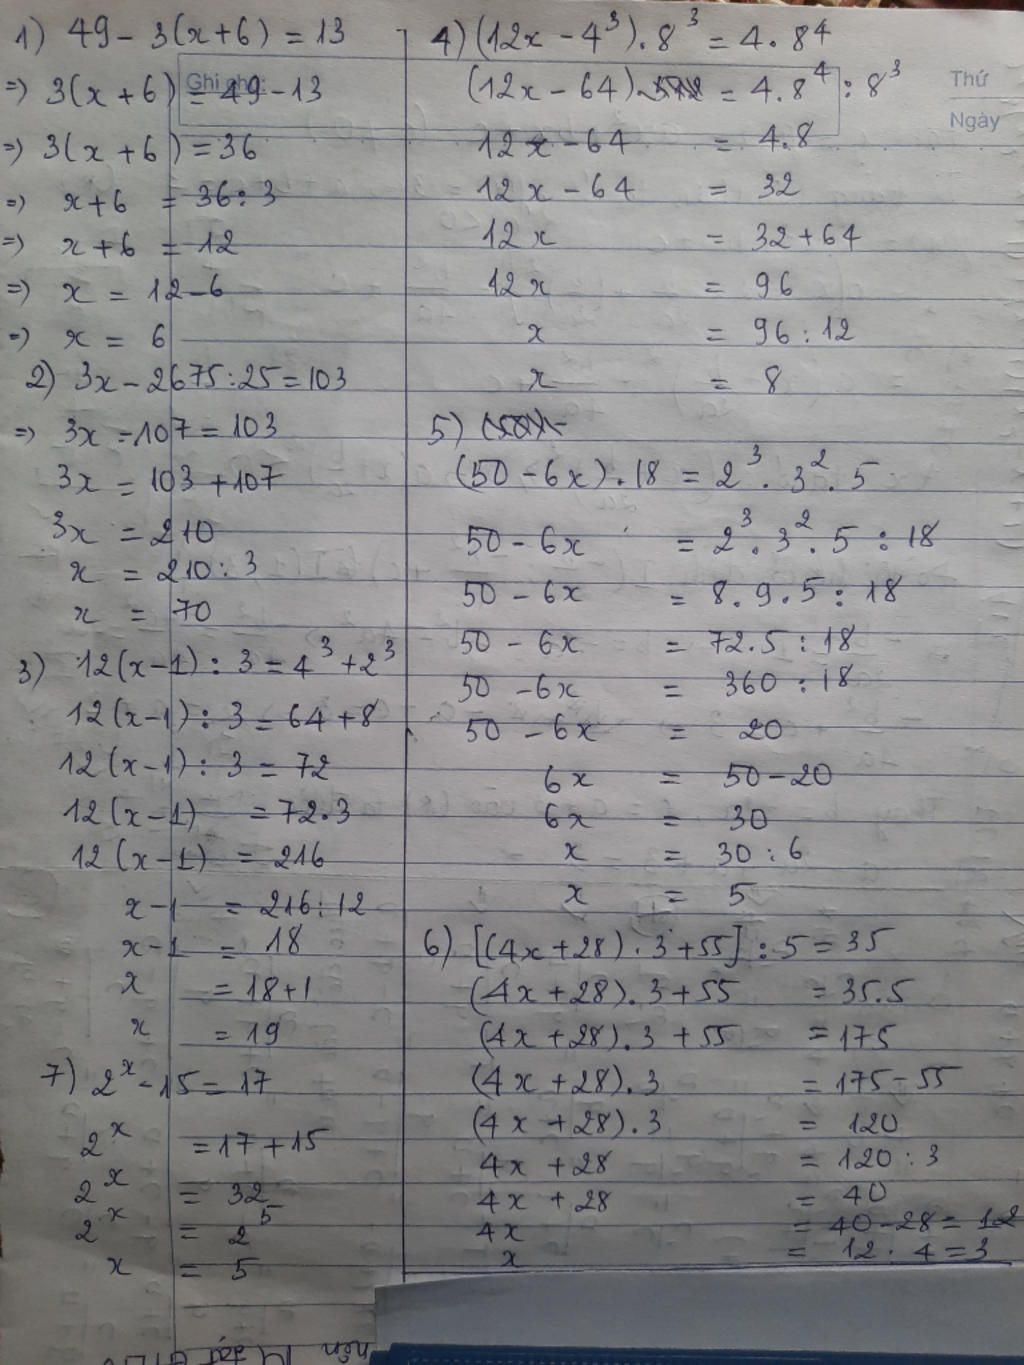 1) 49 - 3(x+6) = 13
=> 3(x+6) = 49 - 13
=> 3(x+6) = 36
=> x+6 = 36 : 3
=> x+6 = 12
=> x = 12 - 6
=> x = 6
2) 3x - 2675 : 25 = 103
=> 3x - 107 = 103
3x = 103 + 107
3x = 210
x = 210 : 3
x = 70
3) 12(x-1) : 3 = 4³ + 2³
12(x-1) : 3 = 64 + 8
12(x-1) : 3 = 72
12(x-1) = 72.3
12(x-1) = 216
x-1 = 216 : 12
x-1 = 18
x = 18+1
x = 19
7) 2ˣ - 15 = 17
2ˣ = 17 + 15
2ˣ = 32
2ˣ = 2⁵
x = 5
4) (12x - 4³) . 8³ = 4 . 8⁴
(12x - 64) = 4 . 8⁴ : 8³
12x - 64 = 4.8
12x - 64 = 32
12x = 32 + 64
12x = 96
x = 96 : 12
x = 8
5)
(50 - 6x) . 18 = 2³ . 3² . 5
50 - 6x = 2³ . 3² . 5 : 18
50 - 6x = 8 . 9 . 5 : 18
50 - 6x = 72.5 : 18
50 - 6x = 360 : 18
50 - 6x = 20
6x = 50 - 20
6x = 30
x = 30 : 6
x = 5
6) [(4x+28) . 3 + 55] : 5 = 35
(4x + 28) . 3 + 55 = 35.5
(4x + 28) . 3 + 55 = 175
(4x + 28) . 3 = 175 - 55
(4x + 28) . 3 = 120
4x + 28 = 120 : 3
4x + 28 = 40
4x = 40 - 28 = 12
x = 12 : 4 = 3
Ghi chú:
Thứ
Ngày